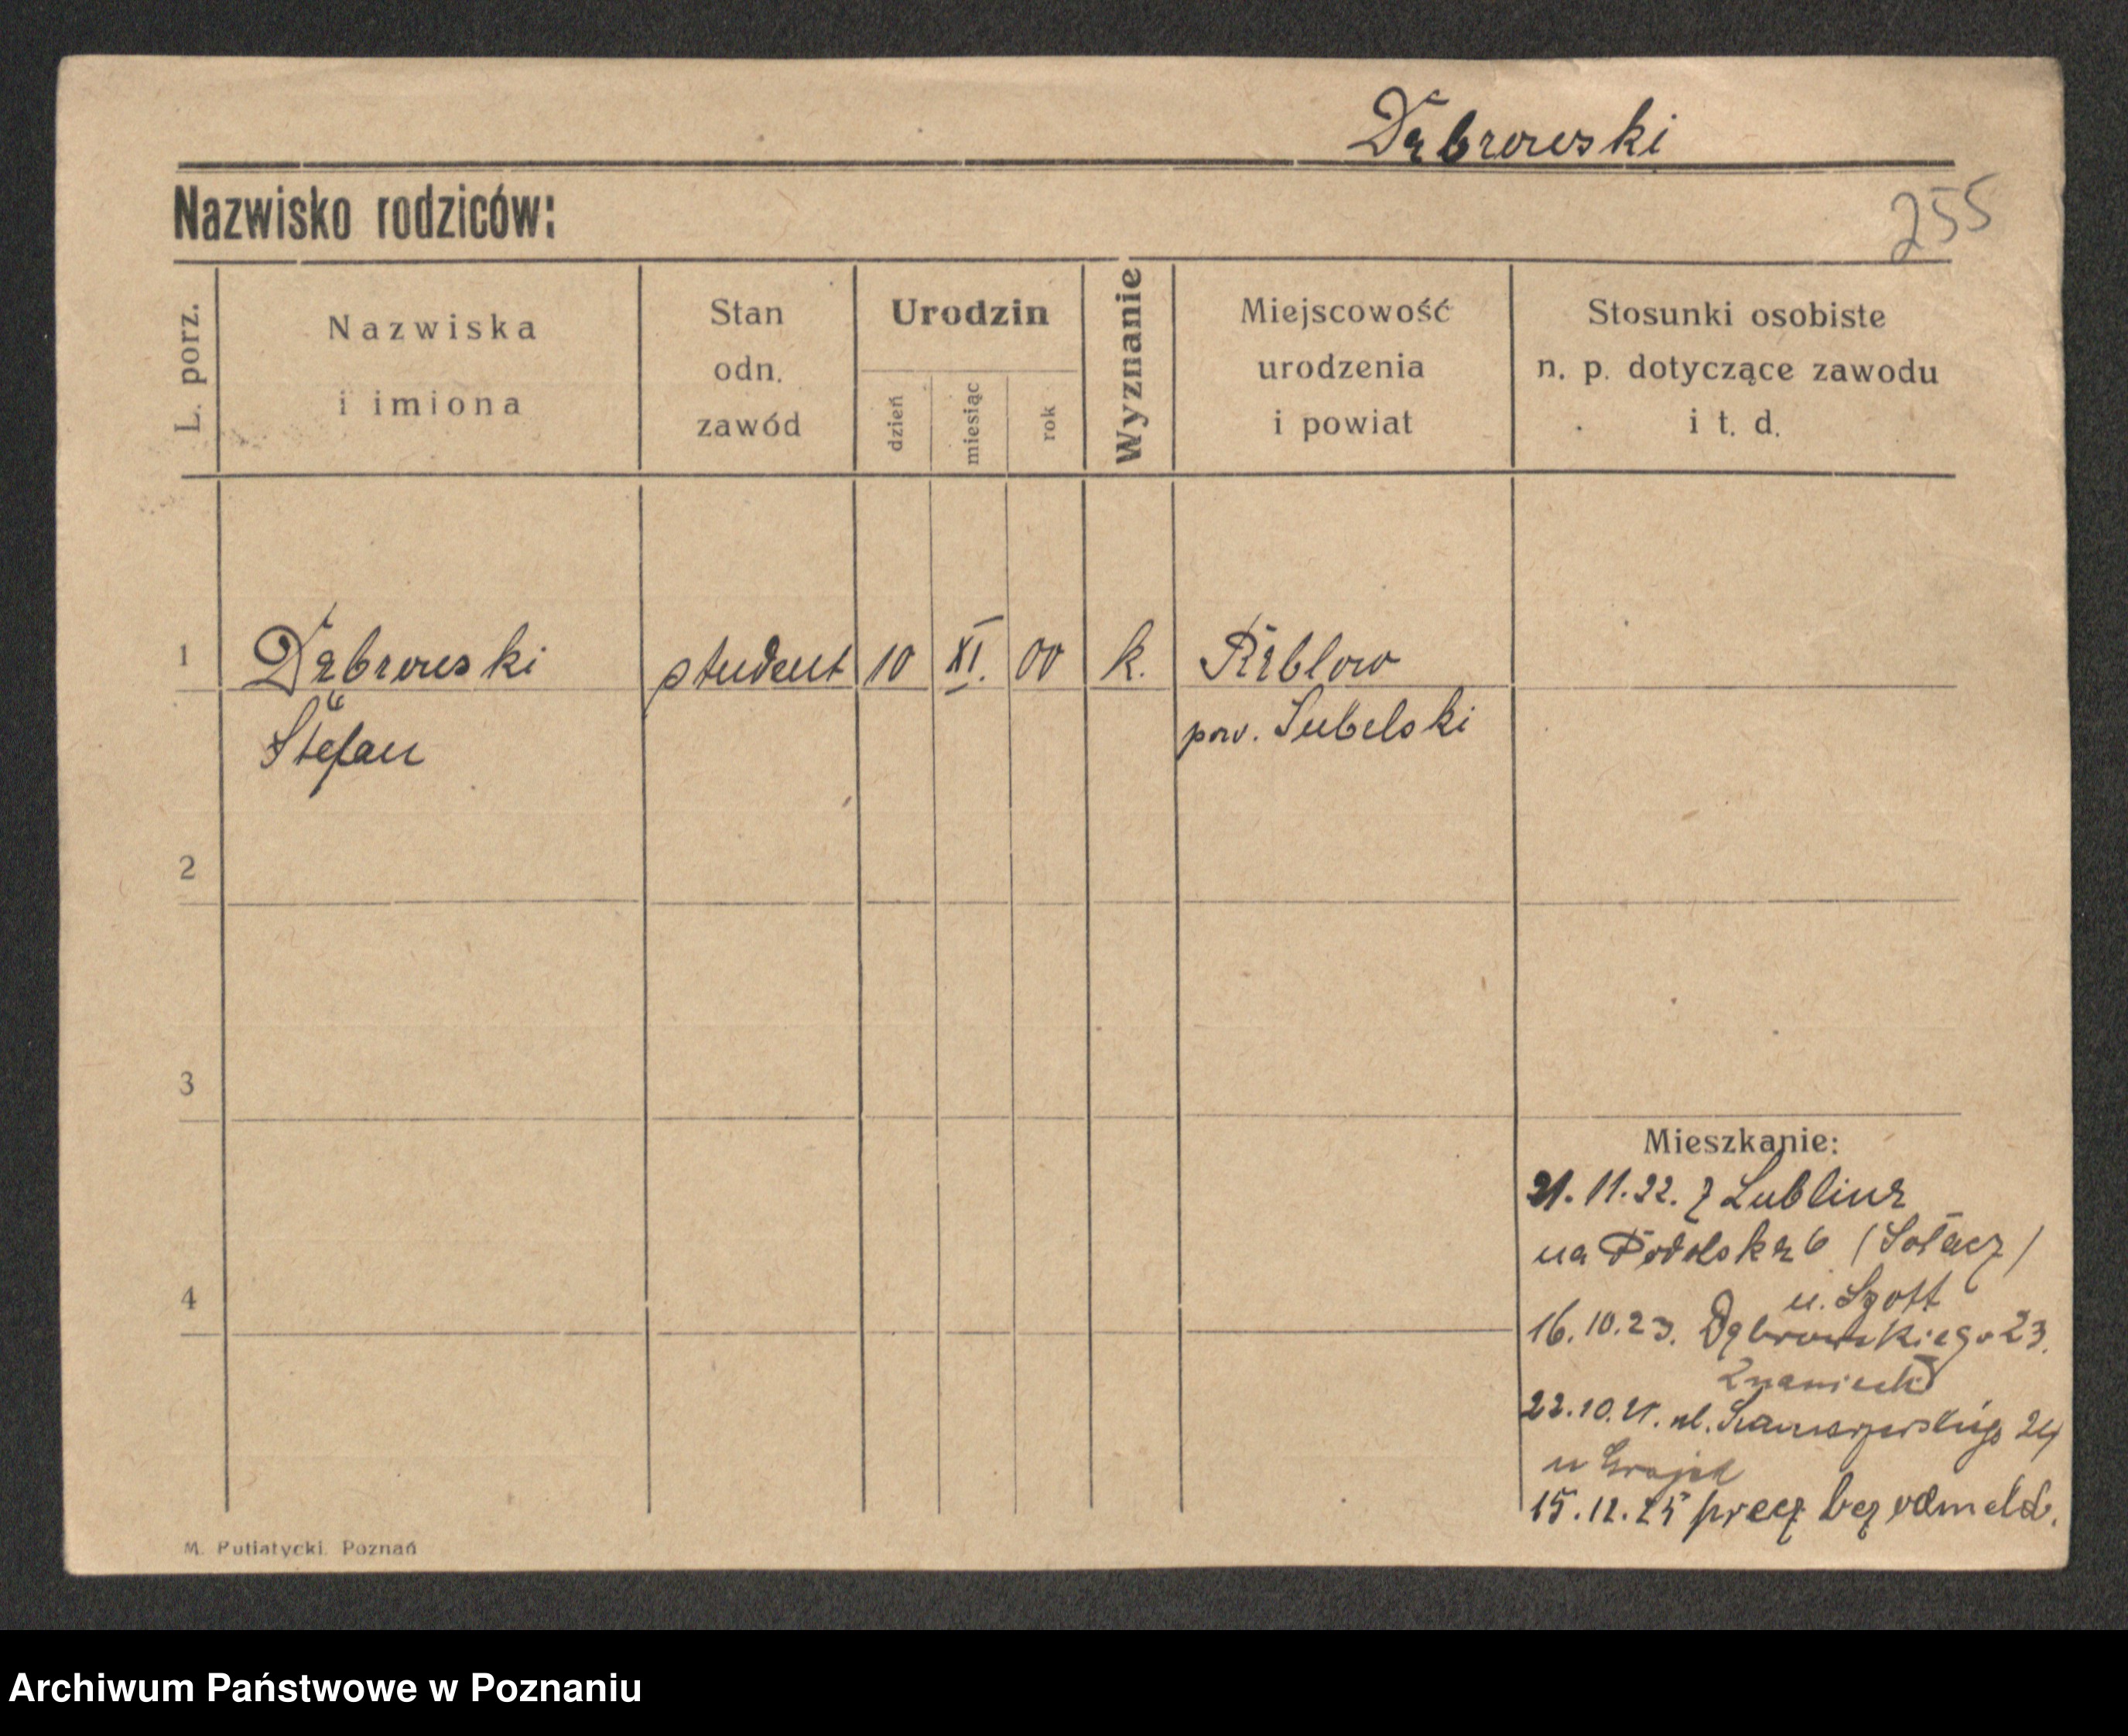 Dąbrowski
Nazwisko rodziców:
255
L. porz.
Nazwiska
i imiona
Stan
odn.
zawód
Urodzin
dzień
miesiąc
rok
Wyznanie
Miejscowość
urodzenia
i powiat
Stosunki osobiste
n. p. dotyczące zawodu
i t. d.
1 Dąbrowski student 10 XI. 00 k. Rąblow
Stefan pow. Lubelski
2
3
Mieszkanie:
21.11.22. z Lublina
na Podolska 6 (Sołacz)
u. Szott
4
16.10.23. Dąbrowskiego 23.
Znaniecki
22.10. ul. 24
u
15.12.25 precz bez odmeld.
M. Putiatycki. Poznań
Archiwum Państwowe w Poznaniu